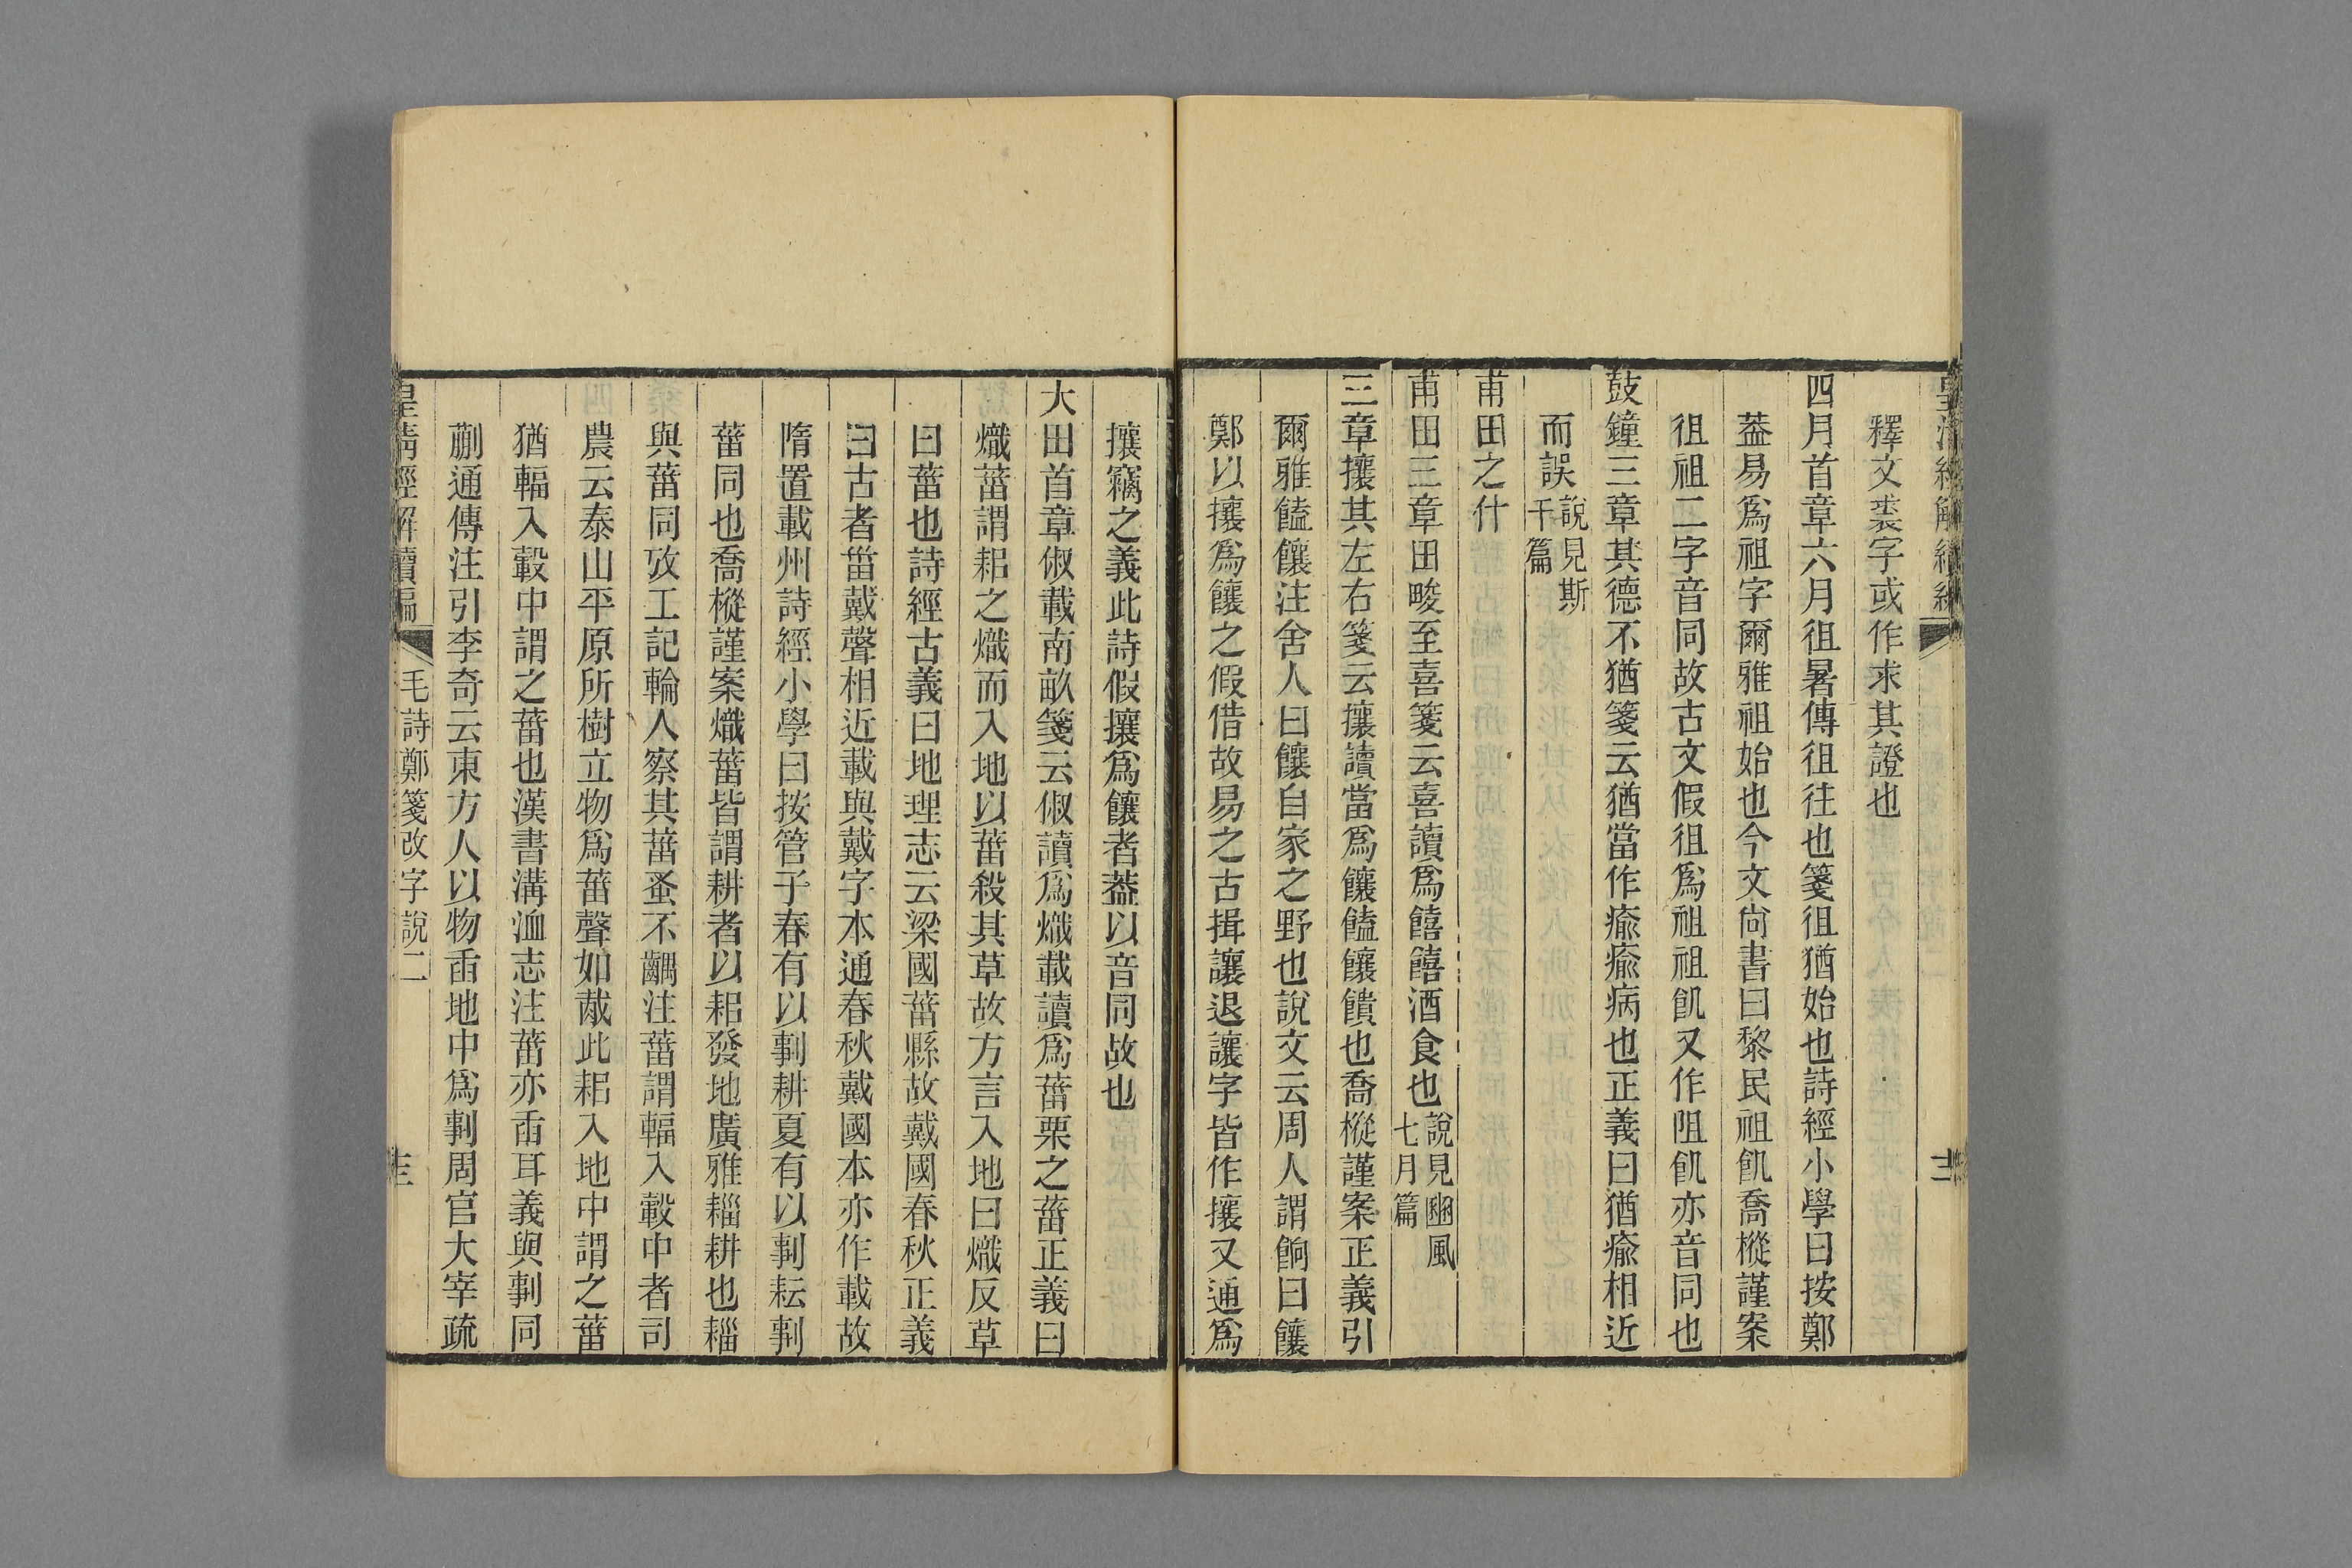 釋文裘字或作求其證也
四月首章六月徂暑傳徂往也箋徂猶始也詩經小學曰按鄭
葢易爲祖字爾雅祖始也今文尙書曰黎民祖飢喬樅謹案
徂祖二字音同故古文假徂爲祖祖飢又作阻飢亦音同也
鼓鐘三章其德不猶箋云猶當作瘉瘉病也正義曰猶瘉相近
而誤說見斯干篇
甫田之什
甫田三章田畯至喜箋云喜讀爲饎饎酒食也說見豳風七月篇
三章攘其左右箋云攘讀當爲饟饁饟饋也喬樅謹案正義引
爾雅饁饟注舍人曰饟自家之野也說文云周人謂餉曰饟
鄭以攘爲饟之假借故易之古揖讓退讓字皆作攘又通爲
攘竊之義此詩假攘爲饟者葢以音同故也
大田首章俶載南畝箋云俶讀爲熾載讀爲菑栗之菑正義曰
熾菑謂耜之熾而入地以菑殺其草故方言入地曰熾反草
曰菑也詩經古義曰地理志云梁國菑縣故戴國春秋正義
曰古者甾戴聲相近載與戴字本通春秋戴國本亦作載故
隋置載州詩經小學曰按管子春有以剚耕夏有以剚耘剚
菑同也喬樅謹案熾菑皆謂耕者以耜發地廣雅䎩耕也䎩
與菑同攷工記輪人察其菑蚤不齵注菑謂輻入轂中者司
農云泰山平原所樹立物爲菑聲如胾此耜入地中謂之菑
猶輻入轂中謂之菑也漢書溝洫志注菑亦臿耳義與剚同
蒯通傳注引李奇云東方人以物臿地中爲剚周官大宰疏
皇清經解續編 毛詩鄭箋改字說二